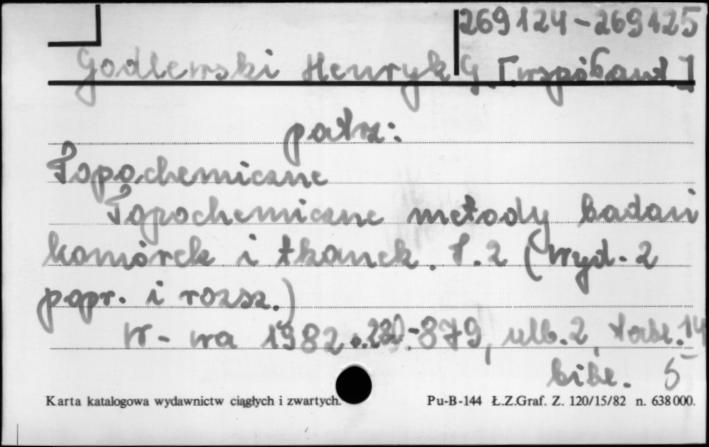 269124-269125
Godlewski Henryk G. [współaut.]
patrz:
Topochemiczne
Topochemiczne metody badań
komórek i tkanek. T.2 (Wyd. 2
popr. i rozsz.)
W-wa 1982 s. -879, ulb. 2, tabl. 14
bibl. 5
Karta katalogowa wydawnictw ciągłych i zwartych. Pu-B-144 Ł.Z.Graf. Z. 120/15/82 n. 638000.